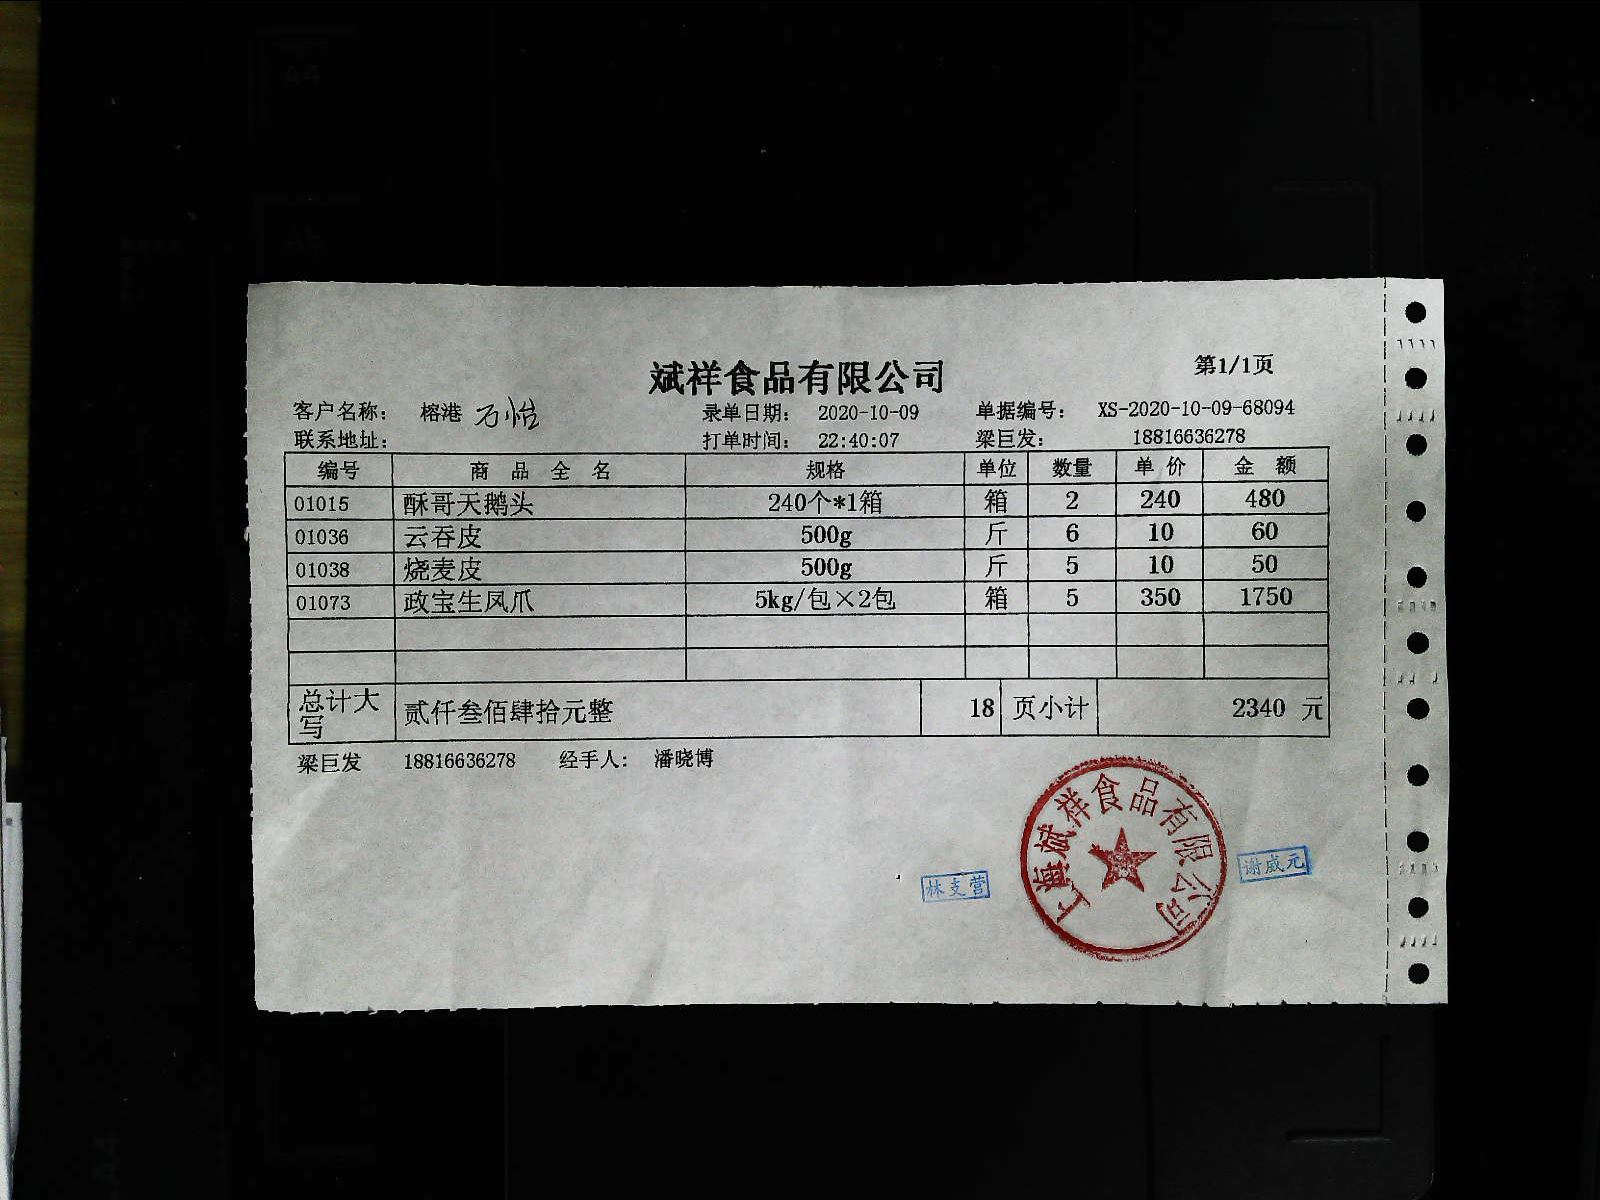 斌祥食品有限公司
第1/1页
客户名称： 榕港 万怡 录单日期： 2020-10-09 单据编号： XS-2020-10-09-68094
联系地址： 打单时间： 22:40:07 梁巨发： 18816636278
编号 商品全名 规格 单位 数量 单价 金额
01015 酥哥天鹅头 240个*1箱 箱 2 240 480
01036 云吞皮 500g 斤 6 10 60
01038 烧麦皮 500g 斤 5 10 50
01073 政宝生凤爪 5kg/包×2包 箱 5 350 1750
总计大写 贰仟叁佰肆拾元整 18 页小计 2340 元
梁巨发 18816636278 经手人： 潘晓博
上海斌祥食品有限公司
林支营
谢威元